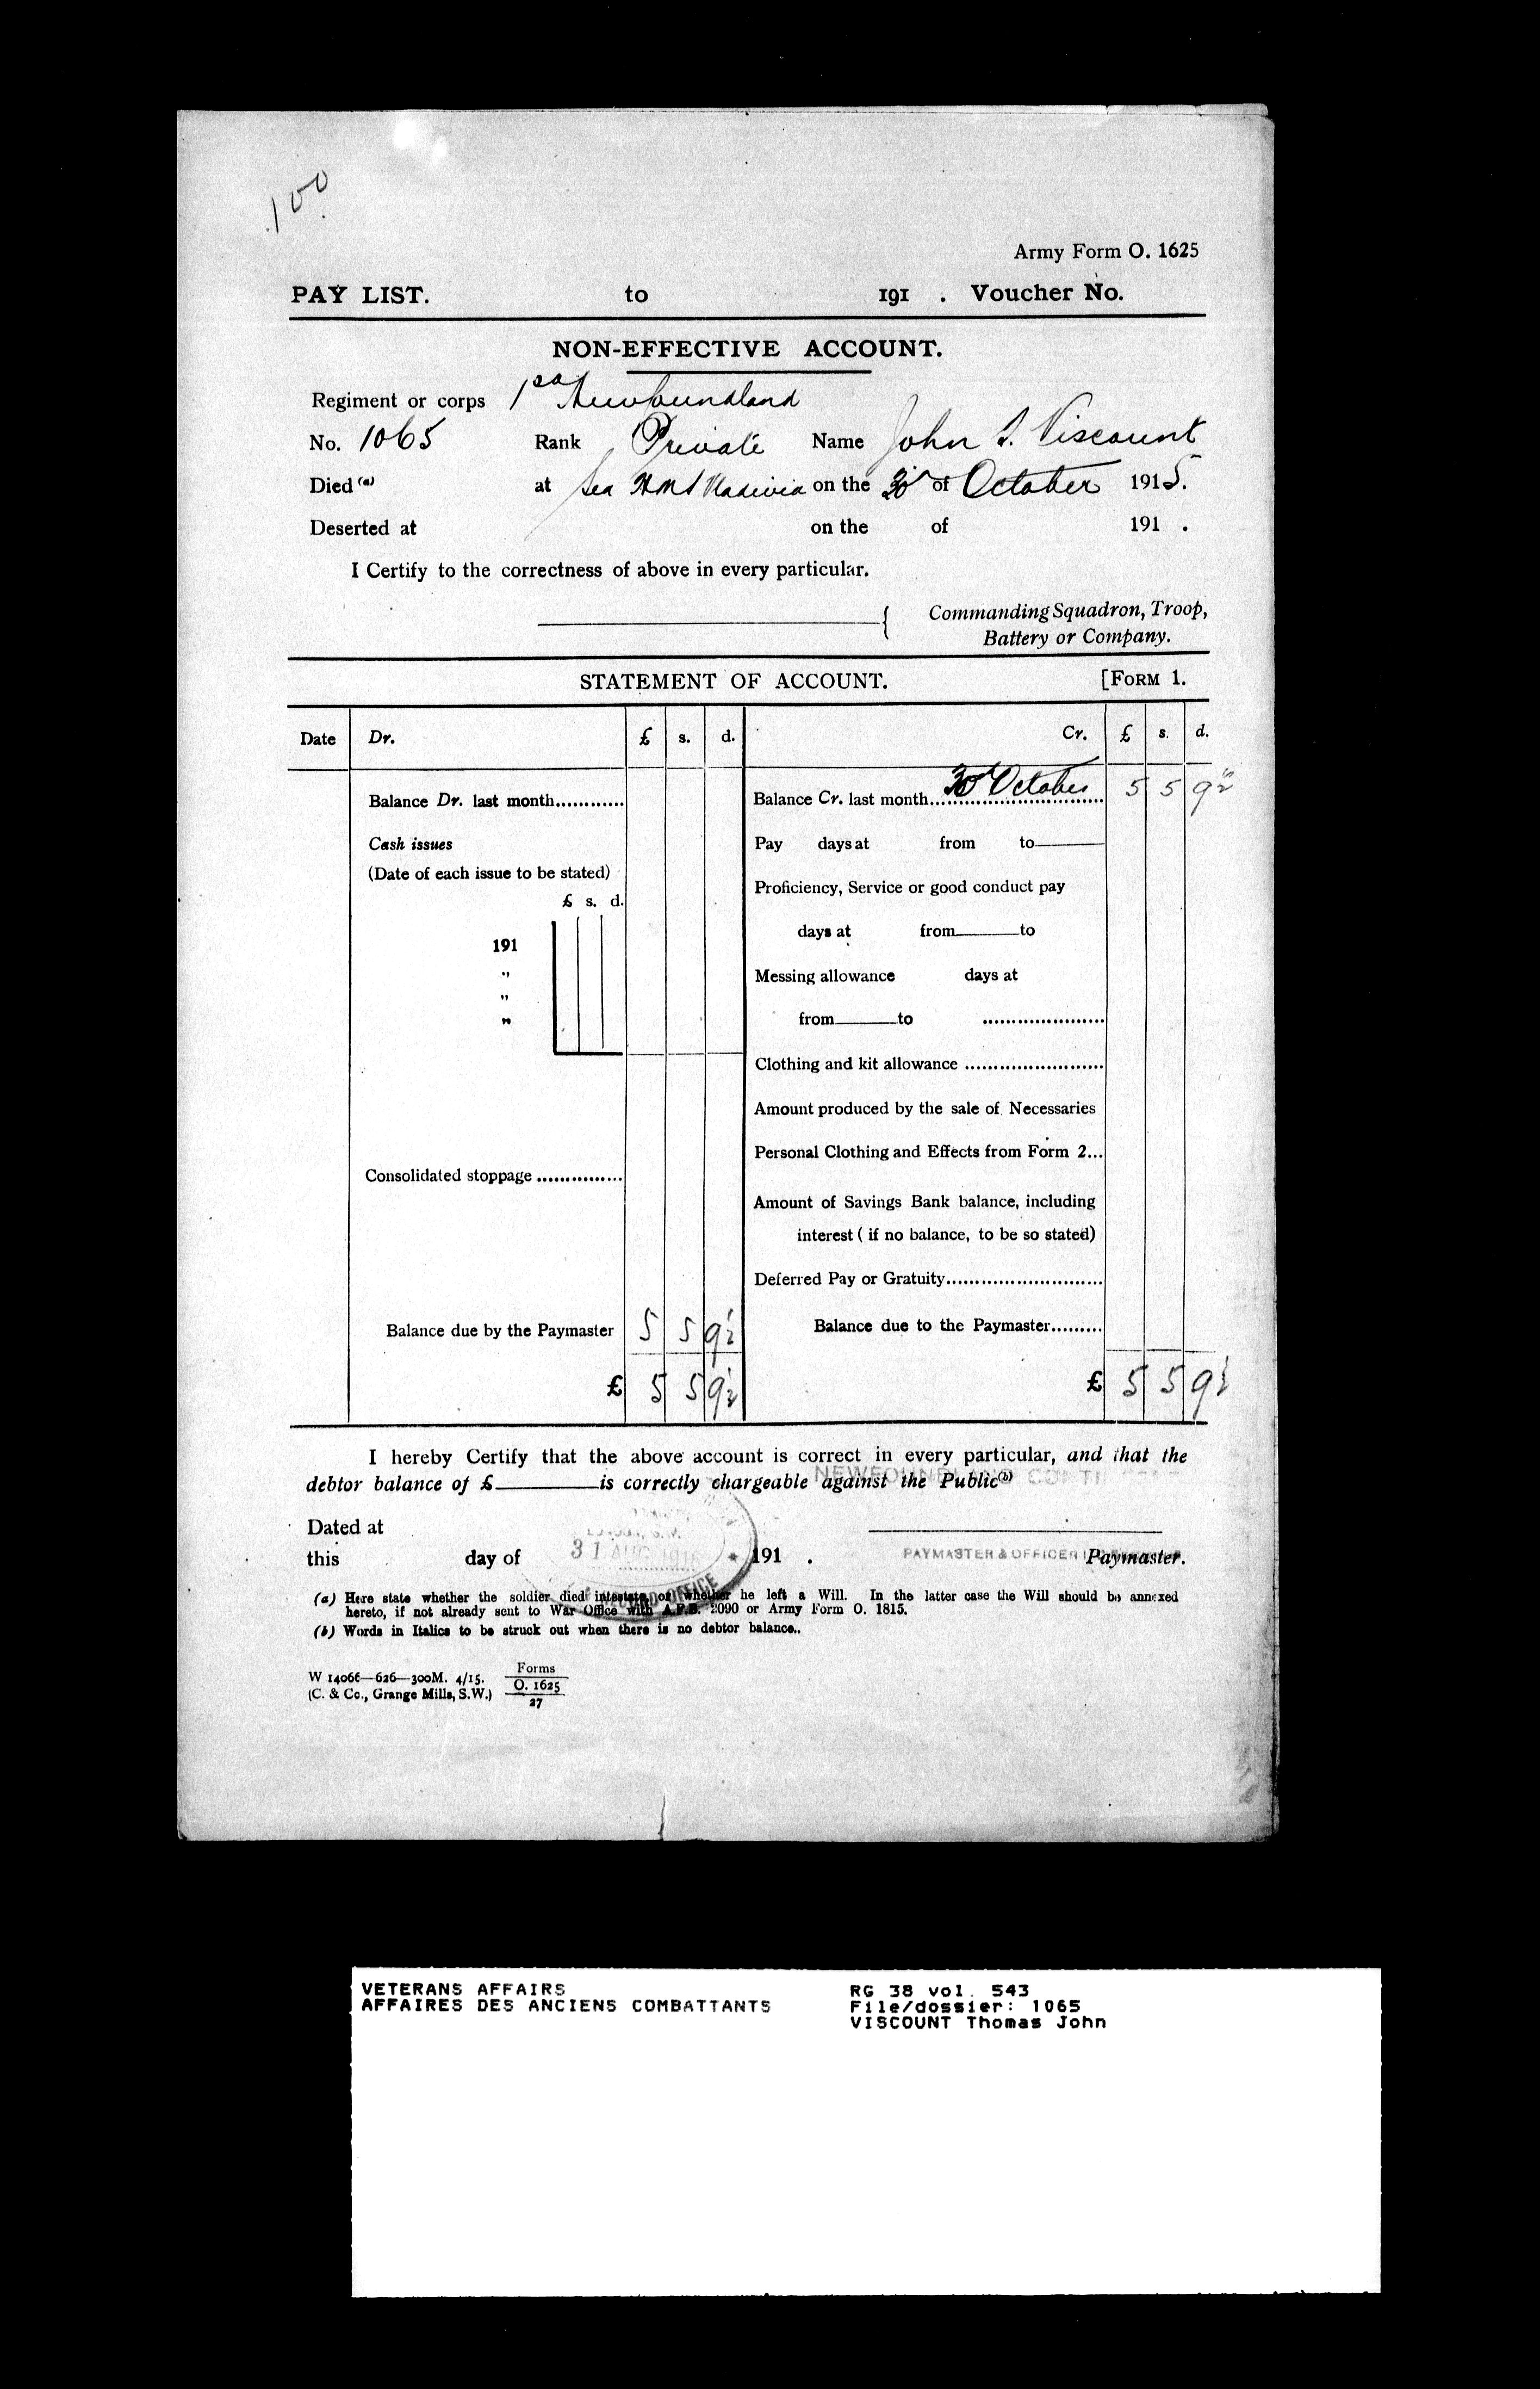 100
Army Form O. 1625
PAY LIST. to 191 . Voucher No.
NON-EFFECTIVE ACCOUNT.
Regiment or corps 1st Newfoundland
No. 1065 Rank Private Name John T. Viscount
Died (a) at Sea HMS on the 30 of October 1915.
Deserted at on the of 191 .
I Certify to the correctness of above in every particular.
Commanding Squadron, Troop,
Battery or Company.
STATEMENT OF ACCOUNT. [FORM 1.
Date Dr. £ s. d. Cr. £ s. d.
Balance Dr. last month............ Balance Cr. last month... 30 October 5 5 9½
Cash issues Pay days at from to
(Date of each issue to be stated) Proficiency, Service or good conduct pay
£ s. d.
191 days at from to
" Messing allowance days at
"
" from to .....................
Clothing and kit allowance ........................
Amount produced by the sale of Necessaries
Personal Clothing and Effects from Form 2...
Consolidated stoppage ...............
Amount of Savings Bank balance, including
interest ( if no balance, to be so stated)
Deferred Pay or Gratuity...........................
Balance due by the Paymaster 5 5 9½ Balance due to the Paymaster.........
£ 5 5 9½ £ 5 5 9½
I hereby Certify that the above account is correct in every particular, and that the
debtor balance of £ is correctly chargeable against the Public (b)
NEWFOUNDLAND
Dated at
this day of 31 AUG 1916 191 .
PAYMASTER & OFFICER Paymaster.
(a) Here state whether the soldier died intestate or whether he left a Will. In the latter case the Will should be annexed
hereto, if not already sent to War Office with A.F.B. 2090 or Army Form O. 1815.
(b) Words in Italics to be struck out when there is no debtor balance..
W 14066—626—300M. 4/15. Forms
(C. & Co., Grange Mills, S.W.) O. 1625
27
VETERANS AFFAIRS RG 38 vol. 543
AFFAIRES DES ANCIENS COMBATTANTS File/dossier: 1065
VISCOUNT Thomas John